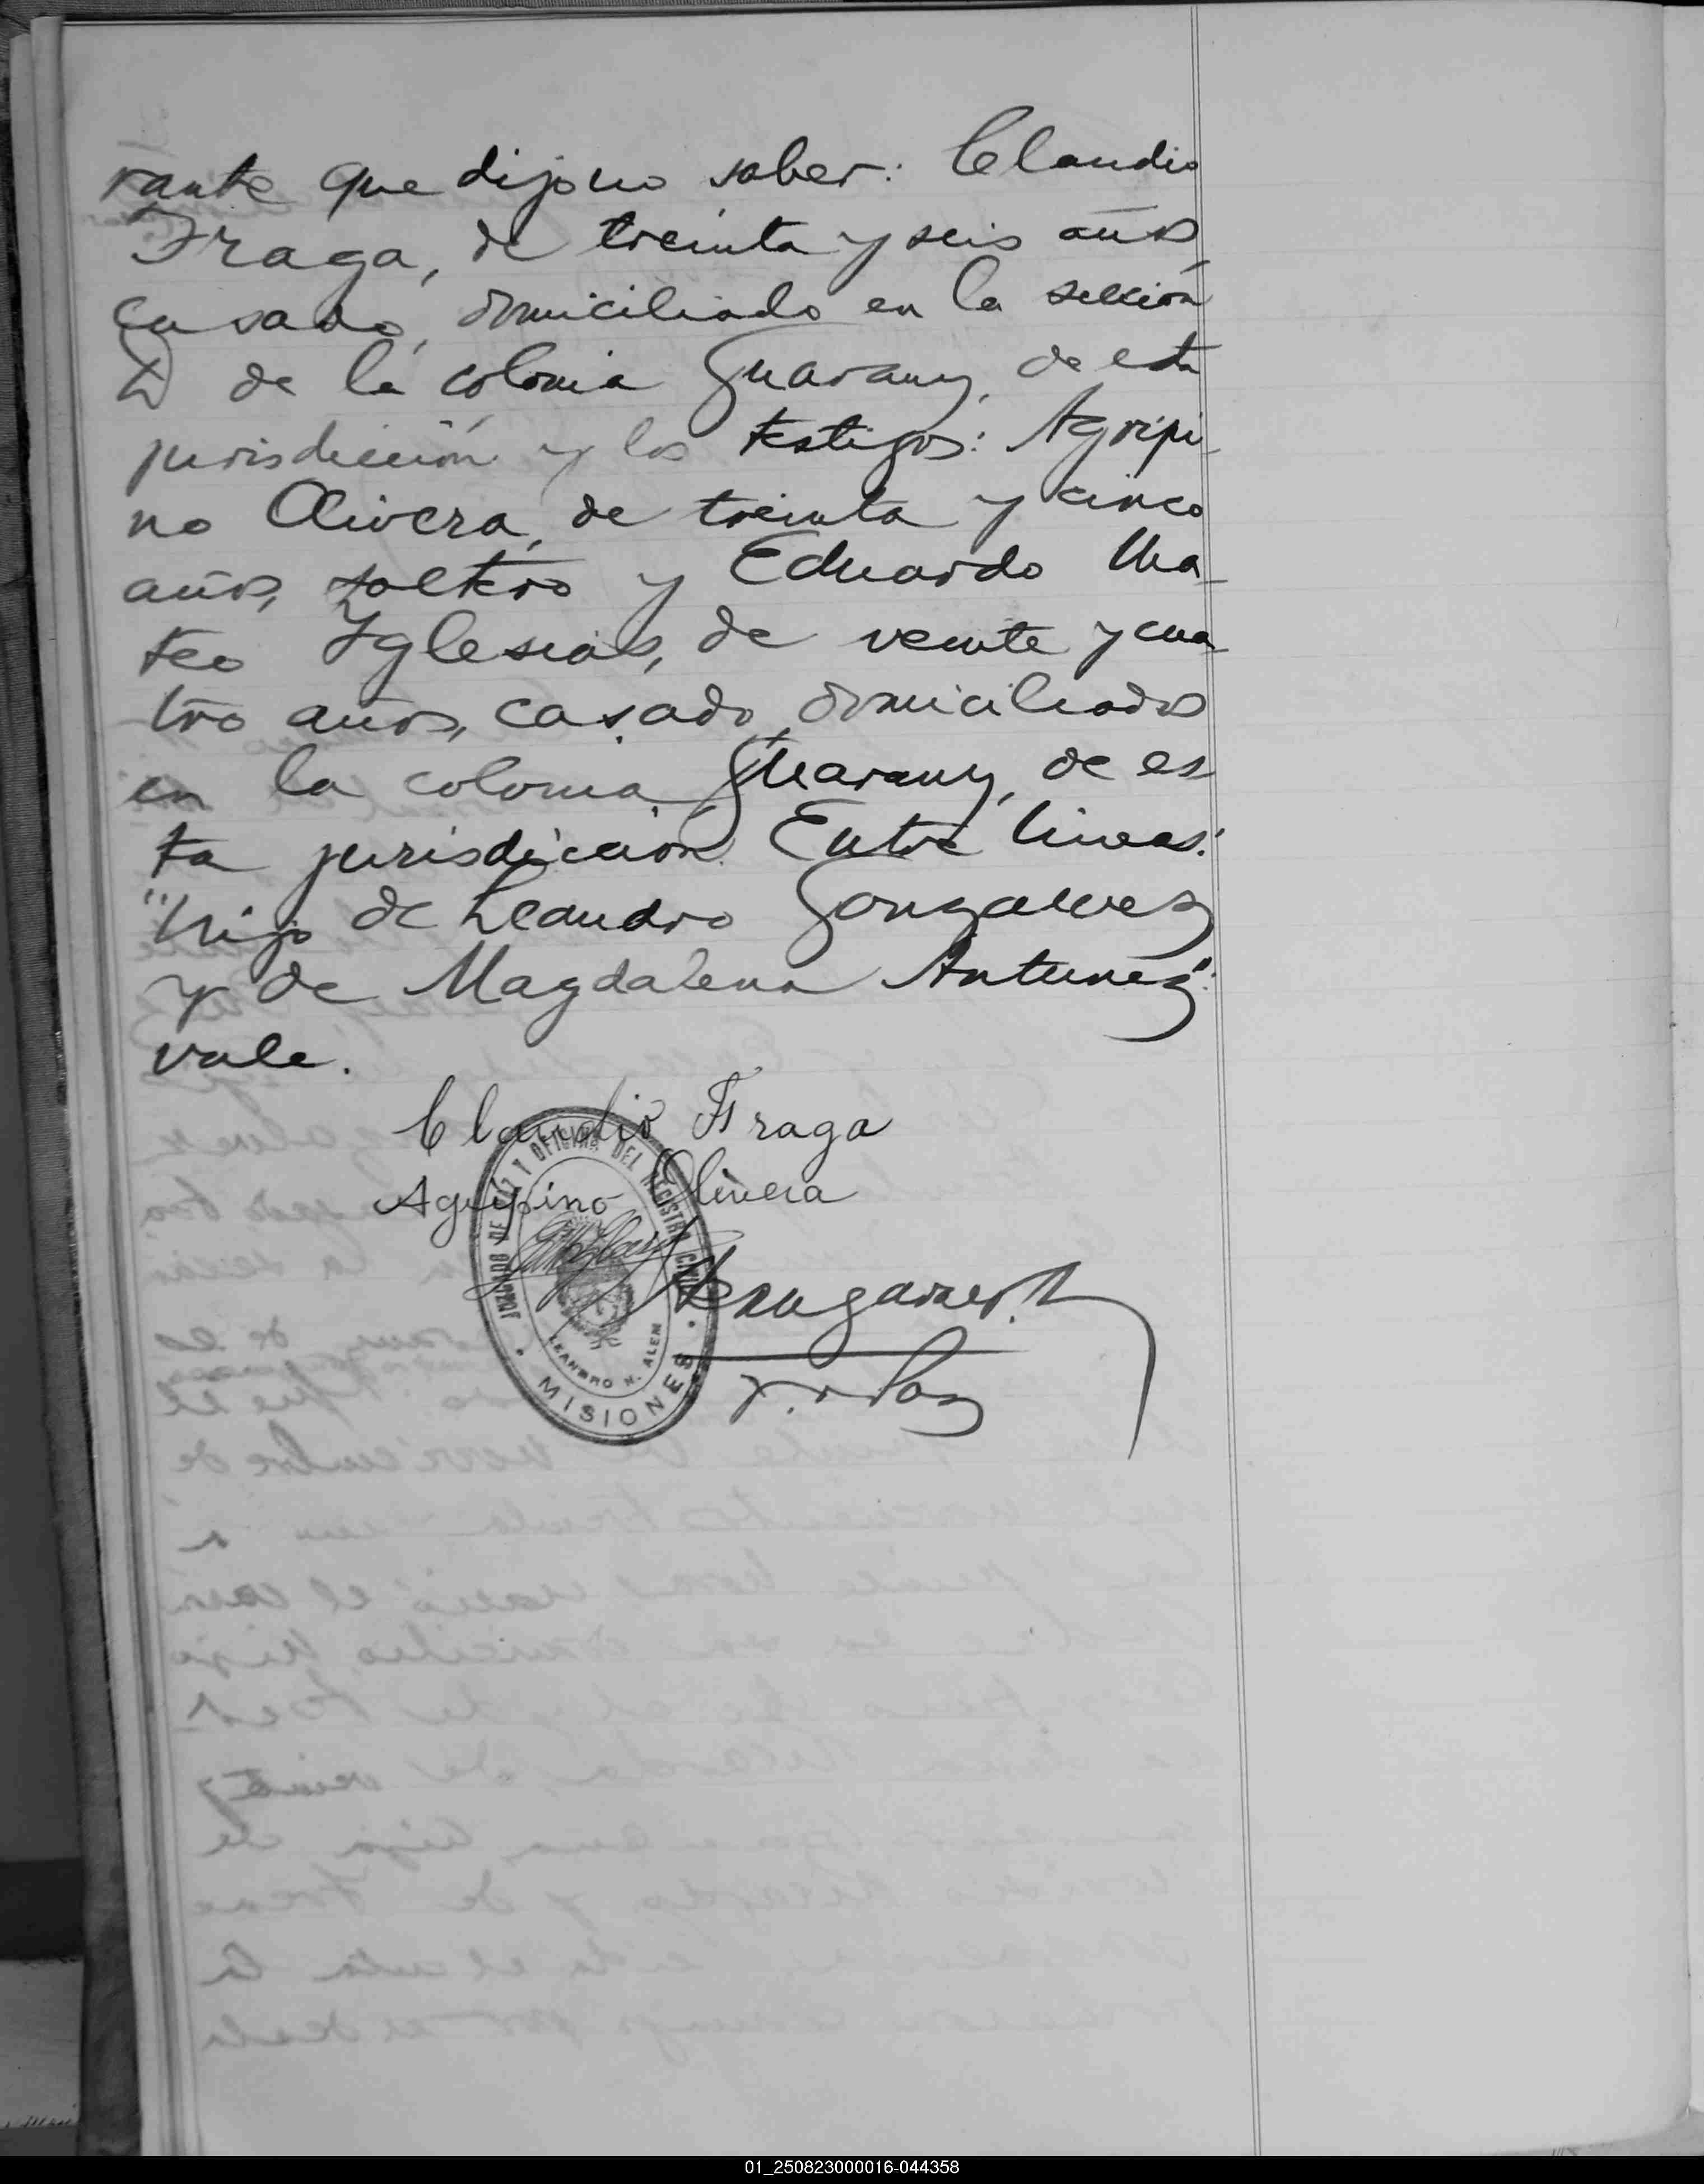 rante que dijo no saber: Claudio
Fraga, de treinta y seis años,
casado, domiciliado en la sección
D de la colonia Guarany, de esta
jurisdicción y los testigos: Agripi-
no Olivera, de treinta y cinco
años, soltero y Eduardo Ma-
teo Iglesias, de veinte y cua-
tro años, casado, domiciliados
en la colonia Guarany, de es-
ta jurisdicción. Entre lineas:
"hijo de Leandro Gonzalvez
y de Magdalena Antunez":
vale.
Claudio Fraga
Agripino Olivera
JUZGADO DE PAZ Y OFICINA DEL REGISTRO CIVIL
LEANDRO N. ALEM
MISIONES
01_250823000016-044358